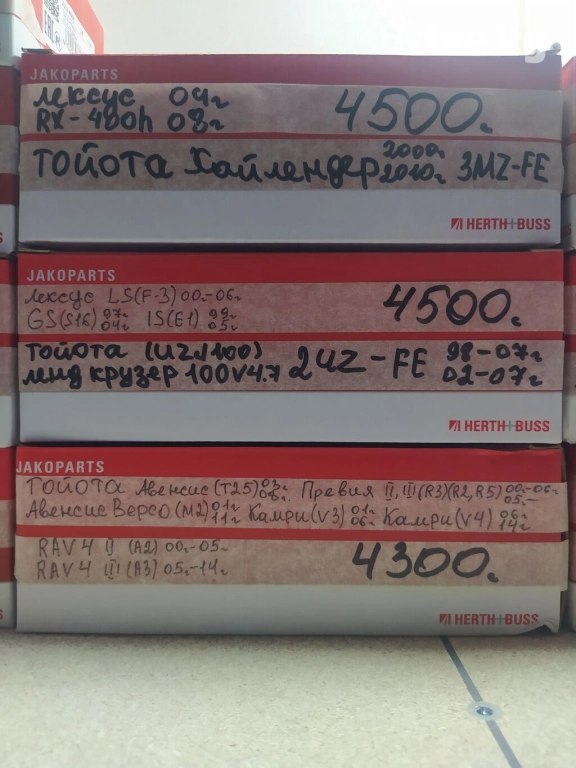 JAKOPARTS
Лексус 04г 4500.
RX-400h 08г
ТОЙОТА Хайлендер 2000г. 2010г. 3MZ-FE
HERTH+BUSS
JAKOPARTS
Лексус LS(F-3) 00.-06г 4500.
GS(S16) 97г 04г IS(E1) 99г 05г
ТОЙОТА (UZJ100) 2UZ-FE 98-07г
крузер 100V4.7 02-07г
HERTH+BUSS
JAKOPARTS
ТОЙОТА Авенсис (T25) 03г 08г. Превия II, III (R3)(R2, R5) 00.-06г 05.-
Авенсис Версо (M2) 01г 11г Камри (V3) 01г 06г Камри (V4) 06г 14г
RAV 4 II (A2) 00г-05г 4300.
RAV 4 III (A3) 05г-14г
HERTH+BUSS